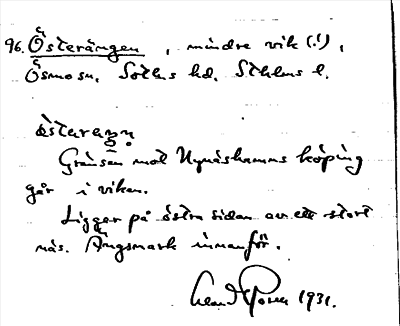 96. Österängen, mindre vik (!),
Ösmo sn. Sotlms hd. Sthlms l.
östaräŋŋ
Gränsen mot Nynäshamns köping
går i viken.
Ligger på östra sidan av ett stort
näs. Ängsmark innanför.
1931.